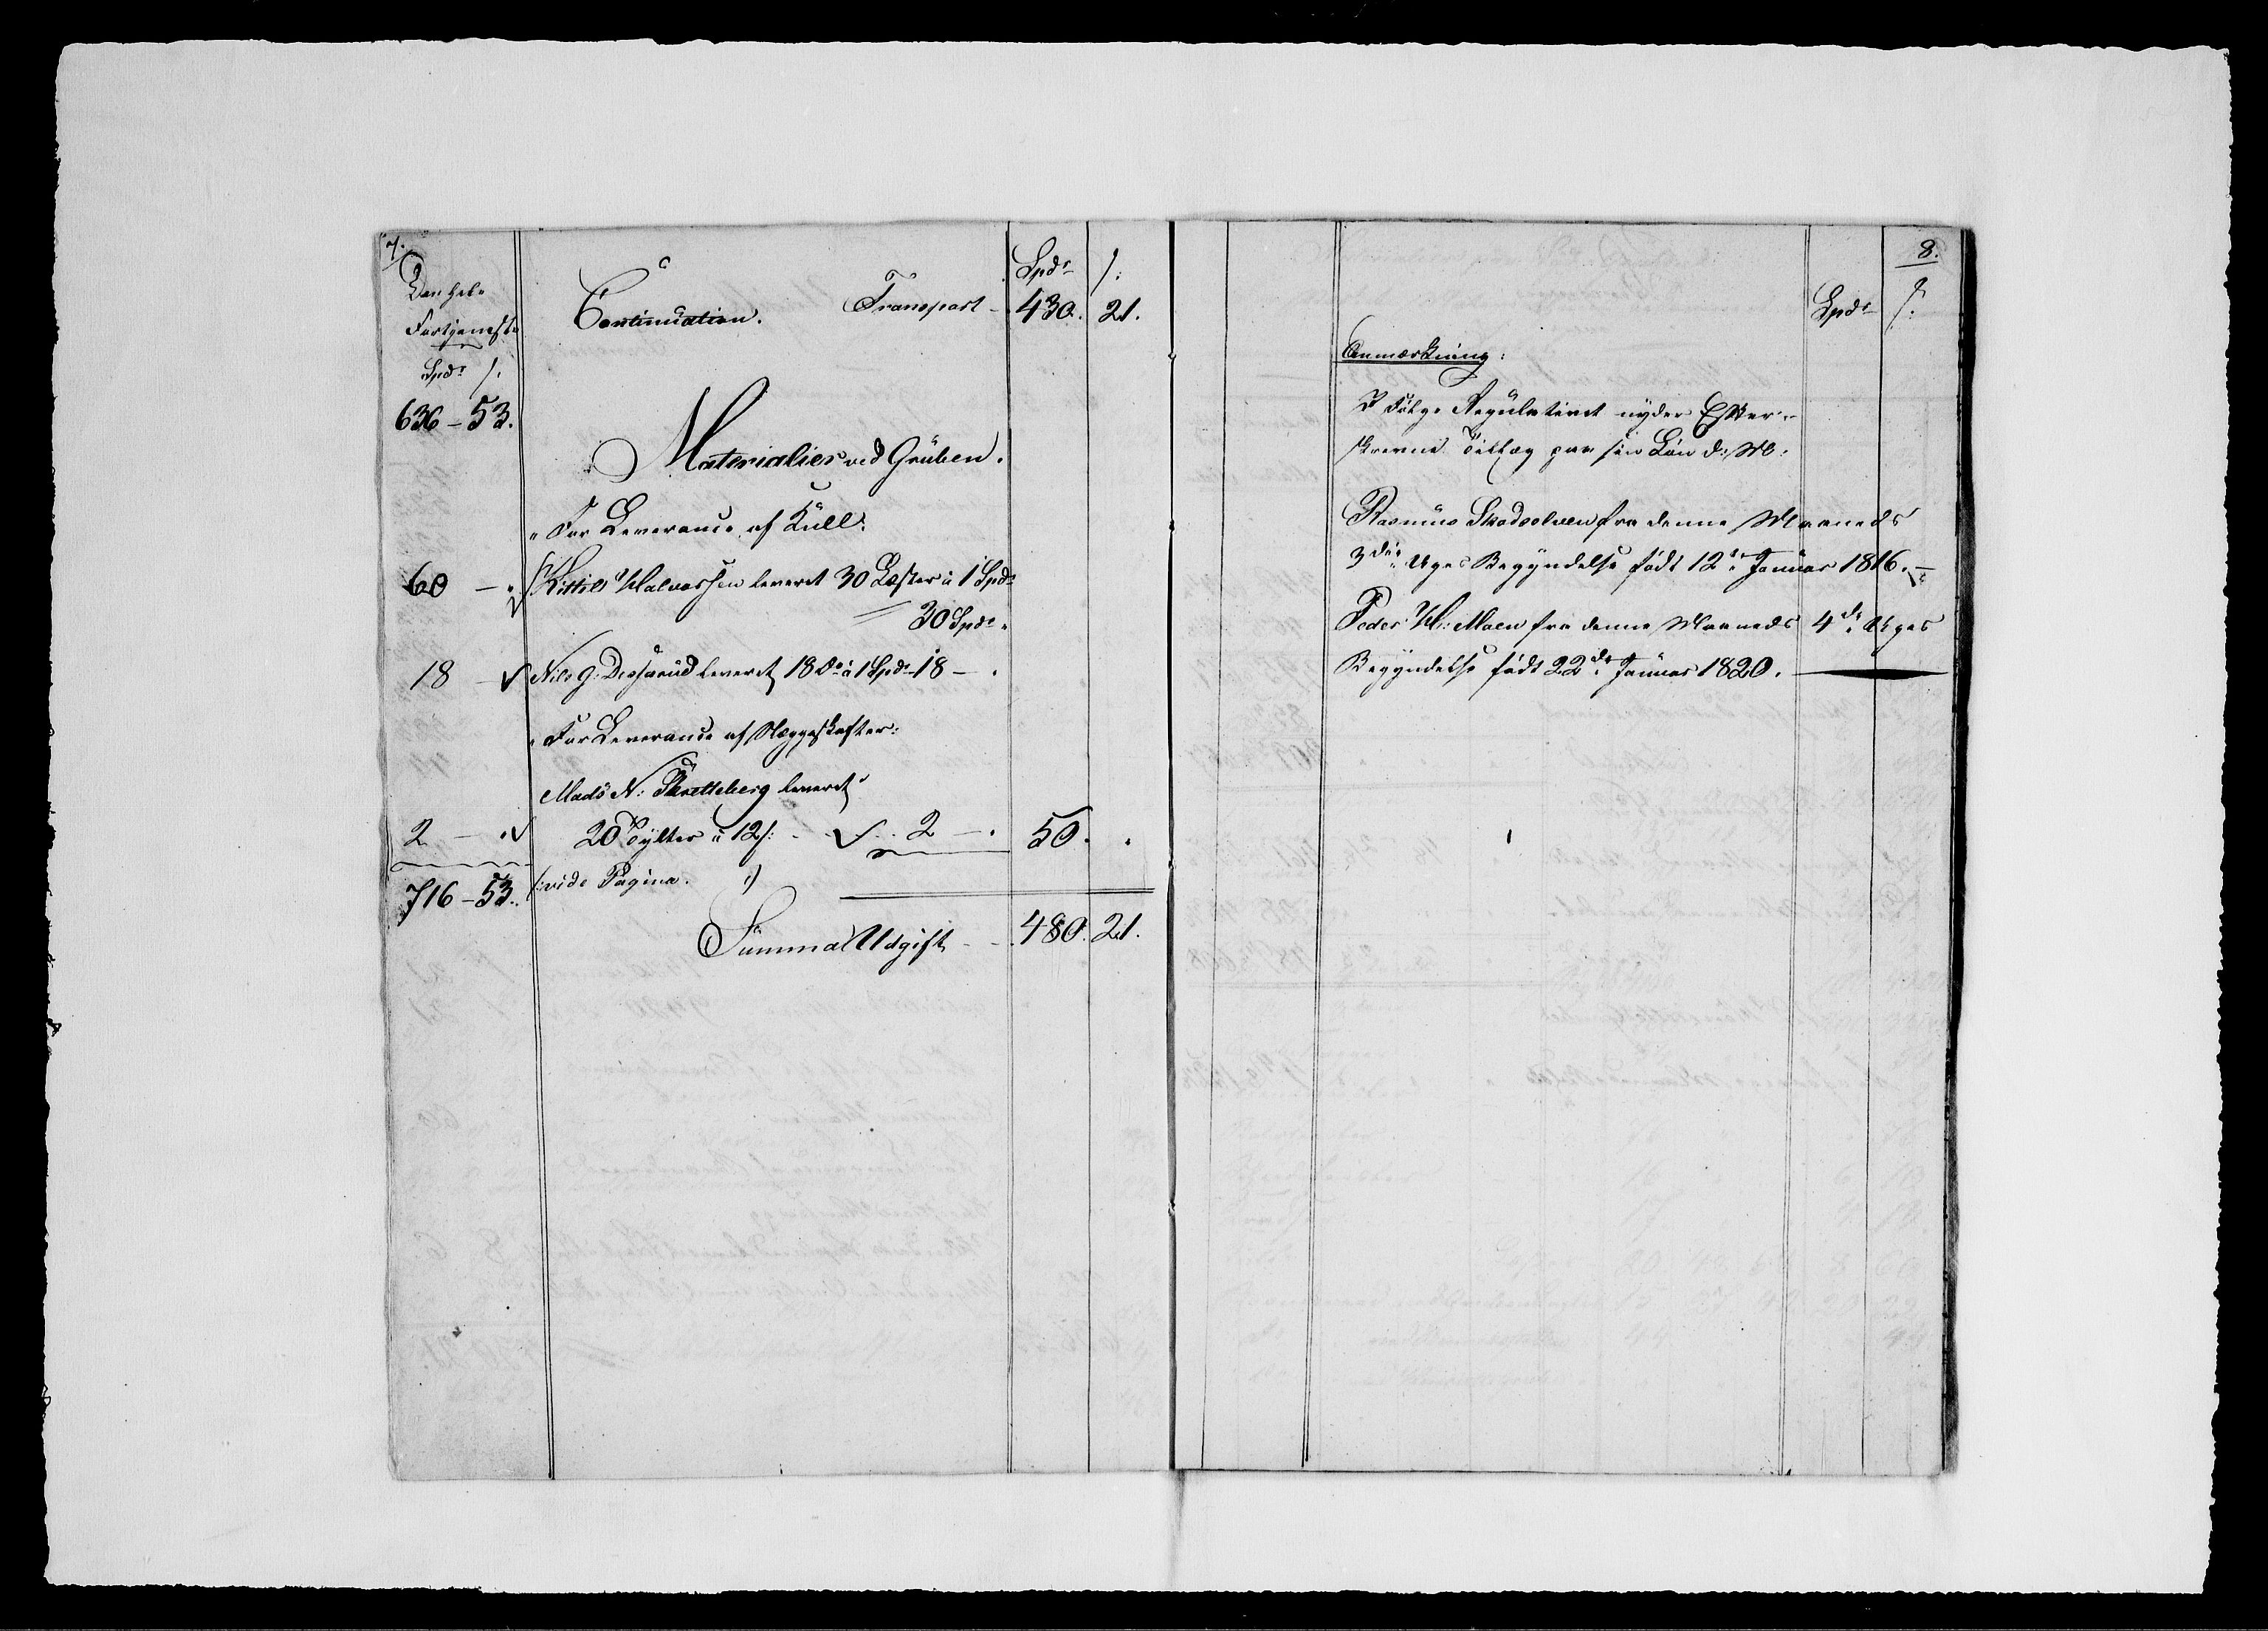 7.
Den hele
Fortjeneste
Spdr ß:
636 - 53.
Continuation. Transport - Spdr ß:
430. 21.
Materialier ved Gruben.
" For Leverance af Kull:
60 - " Kittil Halvorsen leveret 30 Læster à 1 Spdr
30 Spdr "
18 - Nils G: leveret 18 Do à 1 Spdr 18 - "
" For Leverance af Skafter:
Mads N: leveret
2 - " 20 Tylter à 12 ß: - 2 - " 50. "
716 - 53. (:vide Pagina. :)
Summa Udgift - - 480. 21.
8.
Spdr ß:
Anmærkning:
I Følge Regulativet nyder
Tillæg paa sin Løn d: M:
Rasmus Skodsolven fra denne Maaneds
3die Uges Begyndelse født 12te Januar 1816. -
Peder H: Moen fra denne Maaneds 4de Uges
Begyndelse født 22de Januar 1820.